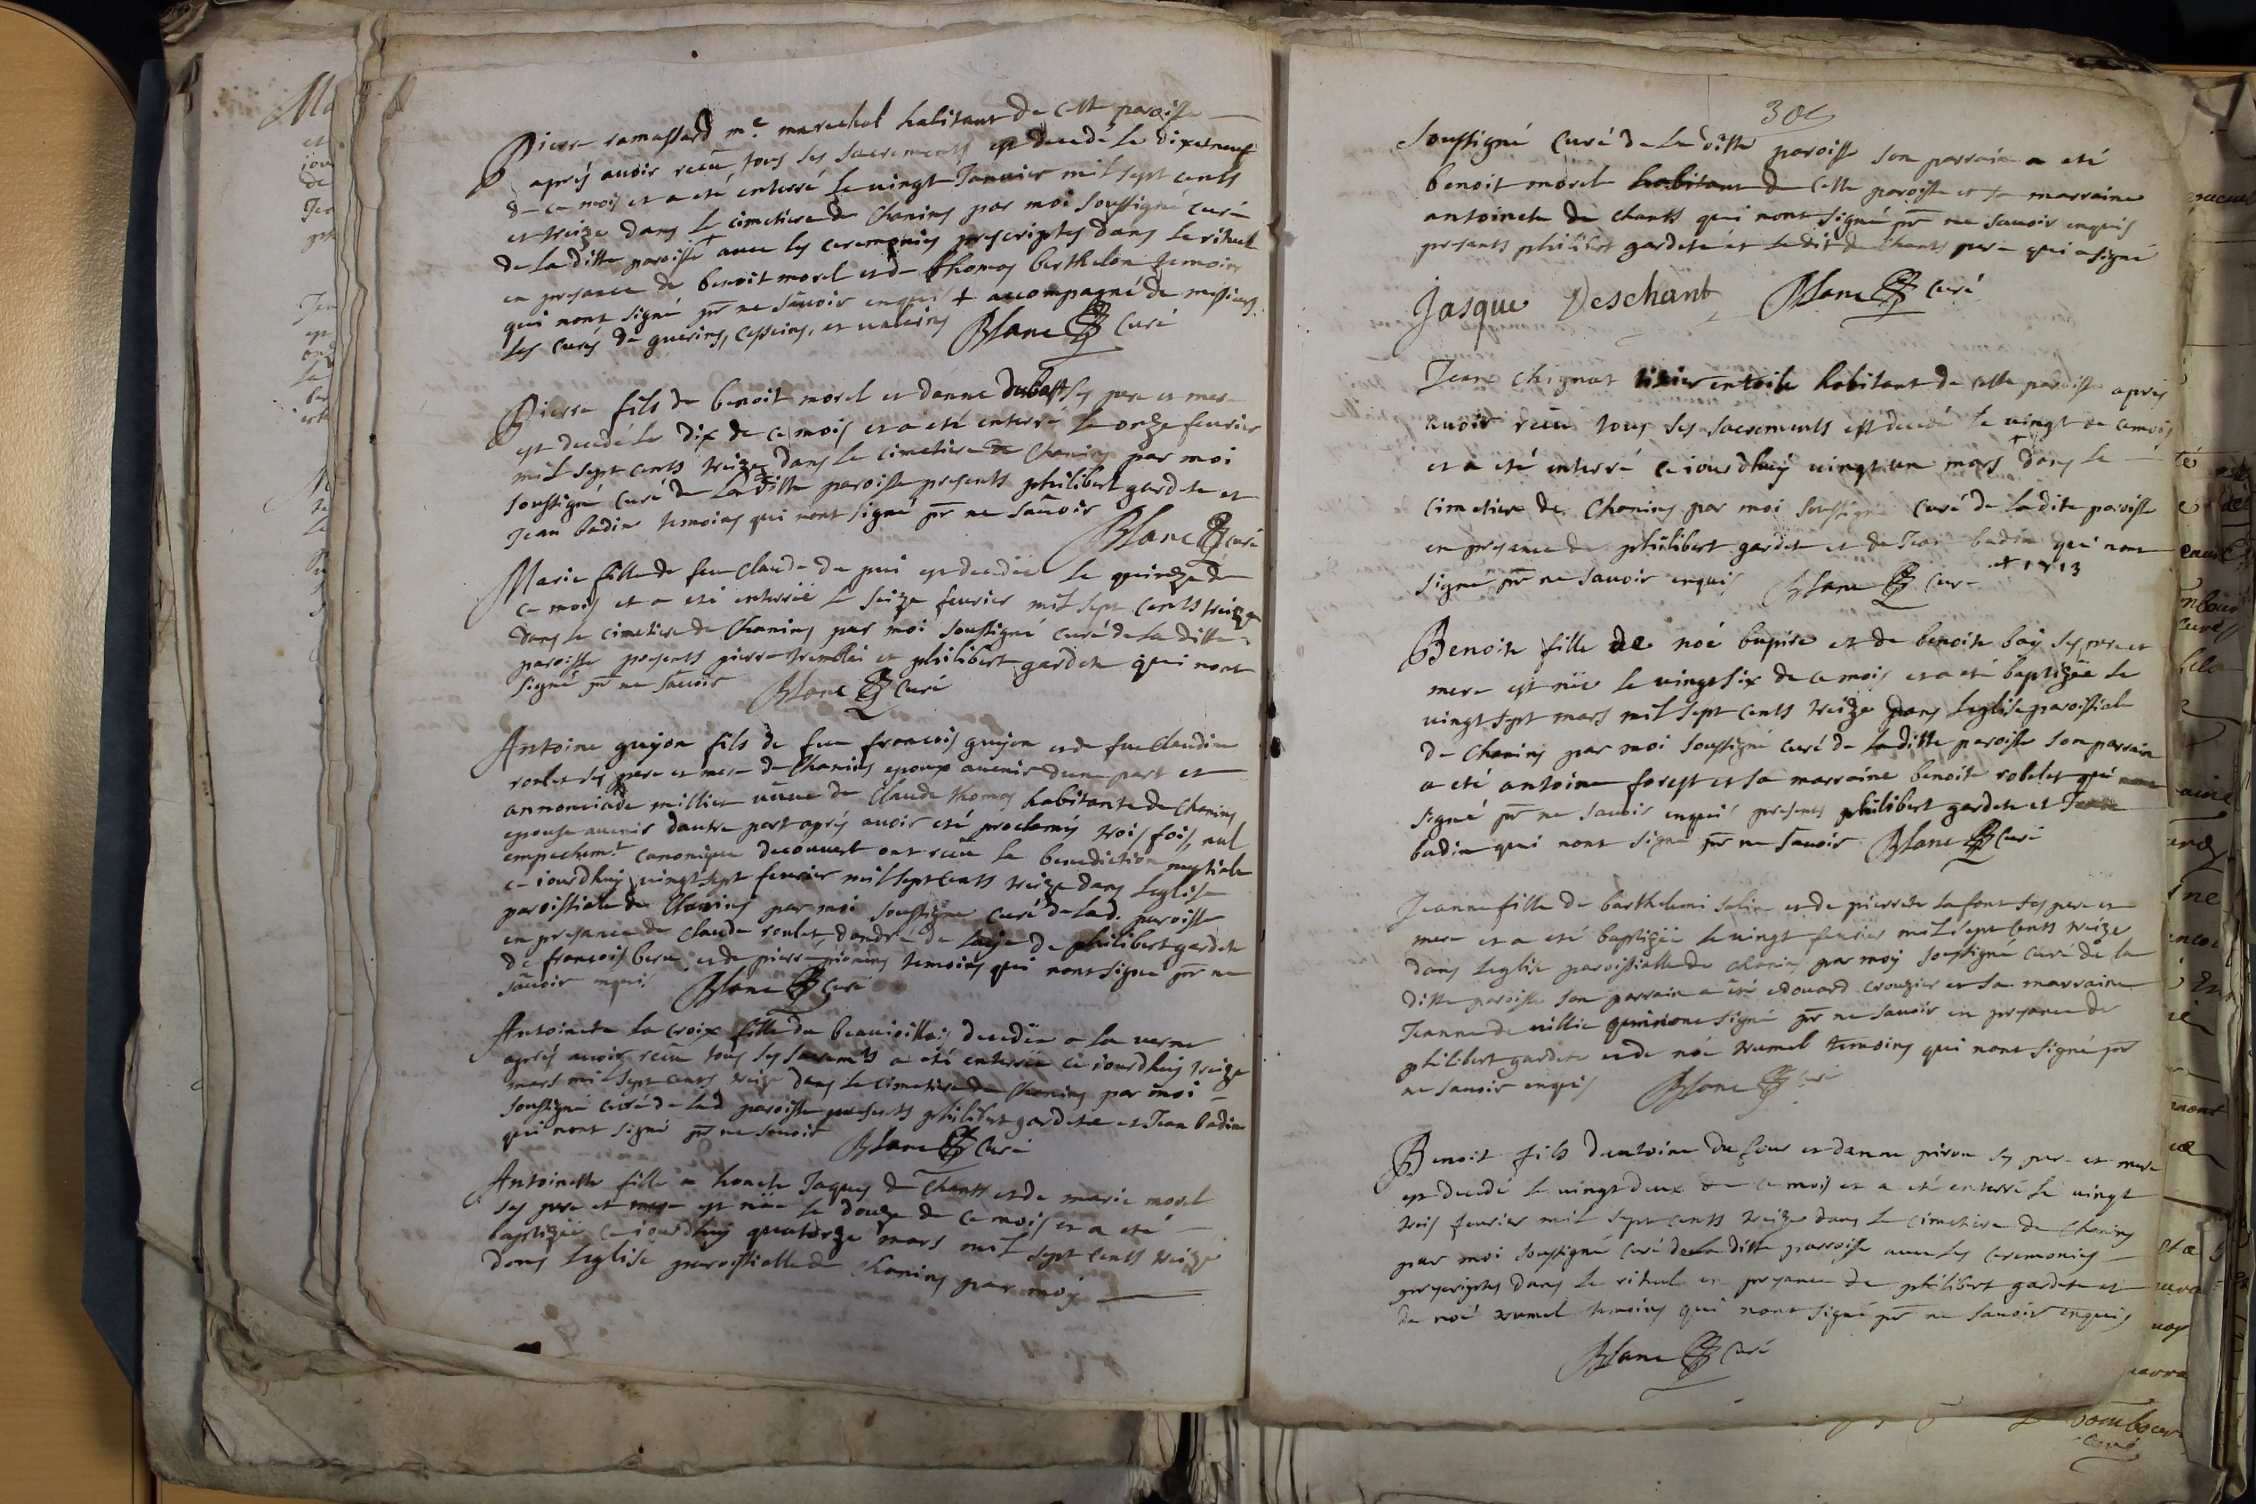 Pierre ramassard me. marechal habitant de cette paroisse
après avoir recû tous ses sacrements est decedé le dixeneuf
de ce mois et a eté enterré le vingt Janvier mil sept cents
et treize dans le cimetiere de Chanins par moi soussigné curé
de la ditte paroisse + avec les ceremonies prescriptes dans le rituel
en presance de benoit morel et de thomas berthelon temoins
qui nont signé pr ne sâvoir enquis + accompagné de messieurs
les curés de guerins, cesseins, et valeins Blanc curé
Pierre fils de benoit morel et danne dubost ses pere et mere
est decedé le dix de ce mois et a eté enterré le onze fevrier
mil sept cents treize dans le cimetiere de Chanins par moi
soussigné curé de la ditte paroisse presents philibert gardete et
Jean badin temoins qui nont signé pr ne sâvoir
Blanc curé
Marie fille de feu Claude du pui est decedée le quinze de
ce mois et a eté enterrée le seize fevrier mil sept cents treize
dans le cimetiere de Chanins par moi soussigné curé de la ditte
paroisse presents pierre tremblai et philibert gardete qui nont
signé pr ne sâvoir Blanc curé
Antoine guyon fils de feu francois guyon et de feue Claudine
roulet ses pere et mere de Chanins epoux avenir dune part et
annonciade millier veuve de Claude thomas habitante de Chanins
epouse avenir dautre part après avoir eté proclamés trois fois, nul
empechemt. canonique decouvert ont recû la benediction nuptiale
ce iourdhuy vingt sept fevrier mil sept cents treize dans leglise
paroissiale de Chanins par moi soussigné curé de lad. paroisse
en presance de Claude roulet, dandré de laye de philibert gardete
de francois et de pierre temoins qui nont signé pr ne
sâvoir enquis Blanc curé
Antoinete la croix fille du beauiollais decedée a la
après avoir recû tous ses sacremts a eté enterrée ce iourdhuy treize
mars mil sept cents treize dans le cimetiere de Chanins par moi
soussigné curé de lad paroisse presents philibert gardete et Jean badin
qui nont signé pr ne sâvoir Blanc curé
Antoinette fille a honete Jaques de Chants et de marie morel
ses pere et mere est née le douze de ce mois et a eté
baptizée ce iourdhuy quatorze mars mil sept cents treize
dans leglise paroissialle de Chanins par moy
soussigné curé de la ditte paroisse son parrain a eté
benoit morel habitant de cette paroisse et sa marraine
antoinete de chants qui nont signé pr ne savoir enquis
presants philibert gardete et ledit de chants pere qui a signé
Jasque Deschant Blanc curé
Jean Chignat tixier en toile habitant de cette paroisse apres
avoir recû tous ses sacrements est decedé le vingt de ce mois
et a eté enterré ce iourdhuy vingt un mars + dans le
cimetiere de Chanins par moi soussigné curé de la dite paroisse
en presance de philibert gardete et de Jean badin qui nont
signé pr ne savoir enquis Blanc curé + 1713
Benoite fille de noé et de benoite bay ses pere et
mere est née le vingt six de ce mois et a eté baptizée le
vingt sept mars mil sept cents treize dans leglise paroissiale
de Chanins par moi soussigné curé de la ditte paroisse son parrain
a eté antoine forest et sa marraine benoite robelet qui nont
signé pr ne savoir enquis presents philibert gardete et Jean
badin qui nont signé pr ne sâvoir Blanc curé
Jeanne fille de barthelemi et de pierrette lafont ses pere et
mere et a eté baptizée le vingt fevrier mil sept cents treize
dans leglise paroissialle de Chanins par moy soussigné curé de la
ditte paroisse son parrain a eté edouard crouzier et sa marraine
Jeanne de millie qui nont signé pr ne savoir en presance de
philibert gardete et de noé trumel temoins qui nont signé pr
ne savoir enquis Blanc curé
Benoit fils dantoine du four et danne piron ses pere et mere
est decedé le vingt deux de ce mois et a eté enterré le vingt
trois fevrier mil sept cents treize dans le cimetiere de Chanins
par moi soussigné curé de la ditte parroisse avec les ceremonies
prescriptes dans le rituel en presance de philibert gardete et
de noé trumel temoins qui nont signé pr ne savoir enquis
Blanc curé